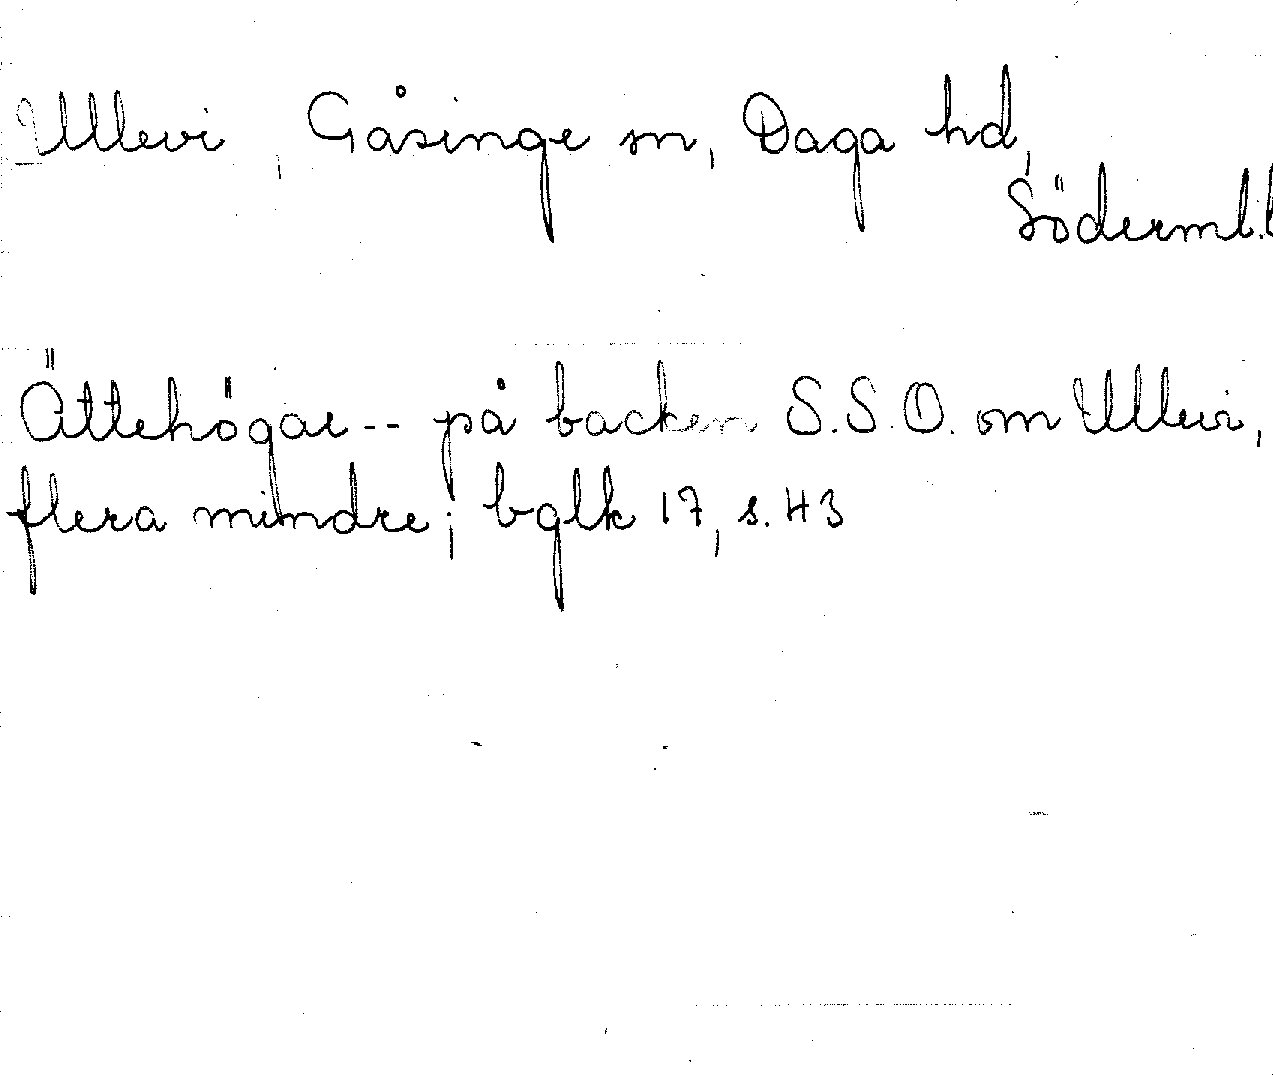 Ullevi, Gåsinge sn, Daga hd,
Söderml.l
Ättehögar -- på backen S.S.O. om Ullevi,
flera mindre; bglk 17, s. 43